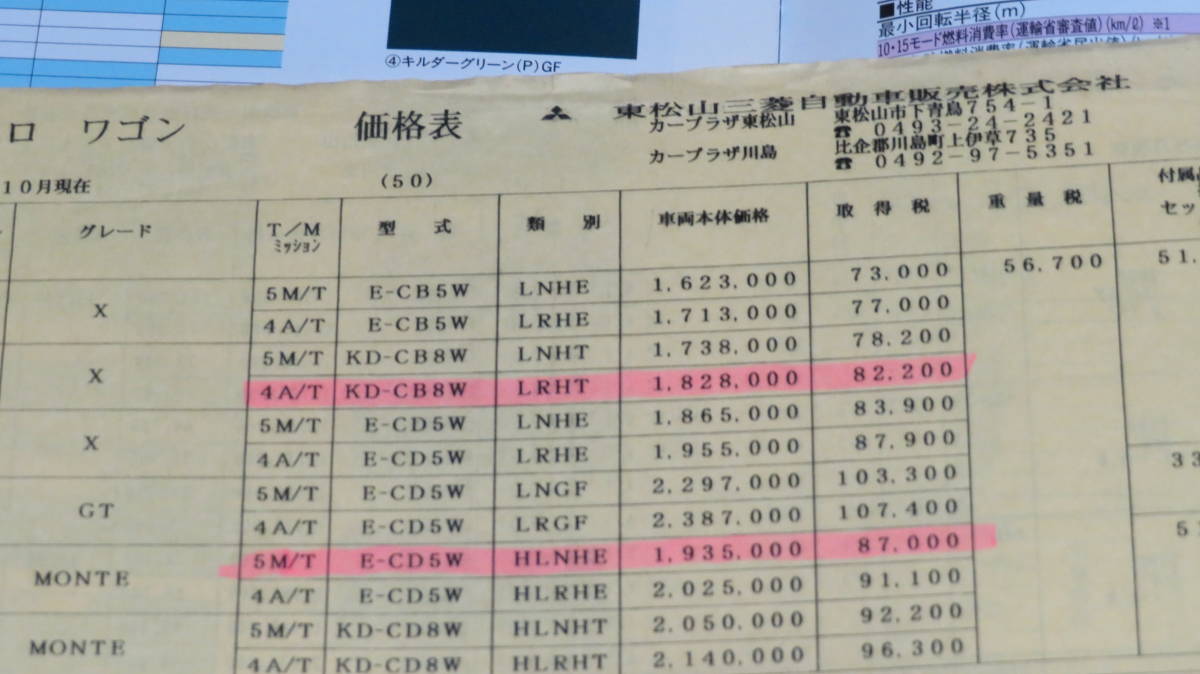 ④キルダーグリーン(P)GF
■性能
最小回転半径(m)
10・15モード燃料消費率(運輸省審査値)(km/ℓ) ※1
ロ ワゴン 価格表 東松山三菱自動車販売株式会社
カープラザ東松山 東松山市下青鳥754-1
☎ 0493-24-2421
カープラザ川島 比企郡川島町上伊草735
☎ 0492-97-5351
10月現在 (50)
グレード T/Mミッション 型 式 類 別 車両本体価格 取 得 税 重 量 税 付属
セッ
X 5M/T E-CB5W LNHE 1,623,000 73,000 56,700 51,
4A/T E-CB5W LRHE 1,713,000 77,000
X 5M/T KD-CB8W LNHT 1,738,000 78,200
4A/T KD-CB8W LRHT 1,828,000 82,200
X 5M/T E-CD5W LNHE 1,865,000 83,900
4A/T E-CD5W LRHE 1,955,000 87,900
GT 5M/T E-CD5W LNGF 2,297,000 103,300 33
4A/T E-CD5W LRGF 2,387,000 107,400
MONTE 5M/T E-CD5W HLNHE 1,935,000 87,000 5
4A/T E-CD5W HLRHE 2,025,000 91,100
MONTE 5M/T KD-CD8W HLNHT 2,050,000 92,200
4A/T KD-CD8W HLRHT 2,140,000 96,300